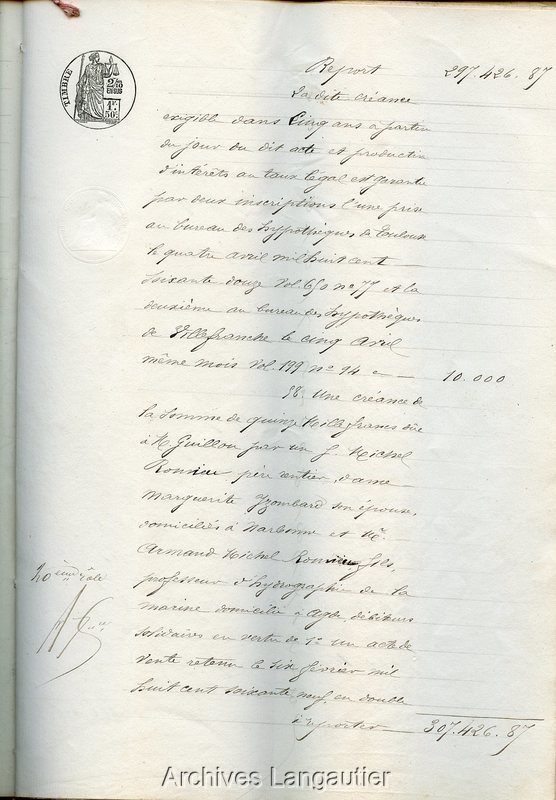 TIMBRE
2/10
EN SUS
1F.
50c.
Report 297.426.87
La dite créance
exigible dans Cinq ans a partir
du jour du dit acte et productive
d'intérêts au taux légal est garantie
par deux inscriptions l'une prise
au bureau des hypothèques de Toulouse
le quatre avril mil huit cent
soixante douze Vol. 650 n° 77 et la
deuxième au bureau des hypothèques
de Villefranche le cinq Avril
même mois Vol. 199 n° 94 10.000
58. Une créance de
la somme de quinze Mille francs dûe
à M. Guillou par un J. Michel
Romieu, père rentier, dame
Marguerite Yzombard son épouse,
domiciliés à Narbonne et Mr.
Armand Michel Romieu fils,
professeur d'hydrographie de la
marine domicilié à Agde, débiteurs
solidaires en vertu de 1° Un acte de
Vente retenu le six février mil
huit cent soixante neuf, en double
à reporter 307.426.87
20 ème rôle
Archives Langautier